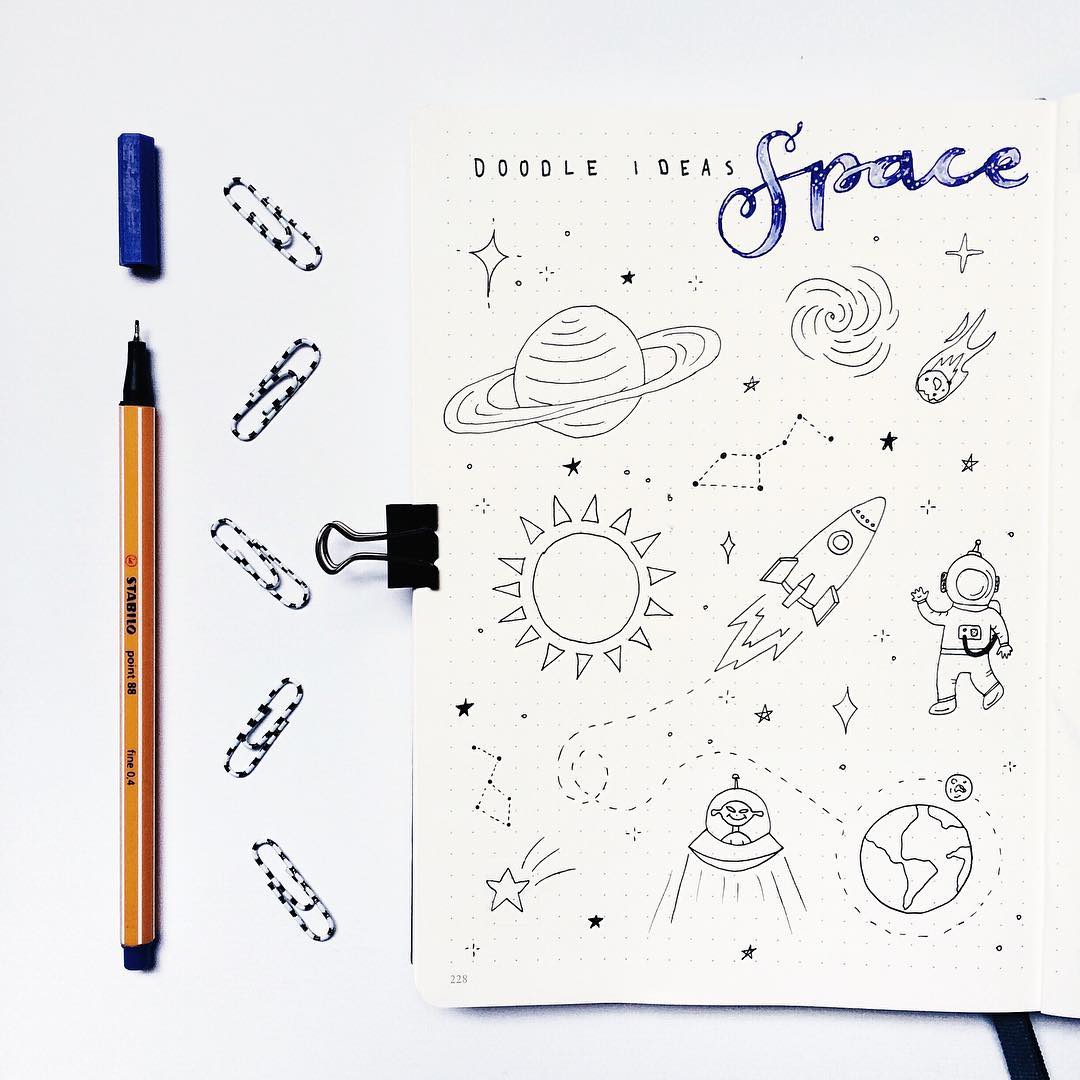 DOODLE IDEAS Space
STABILO point 88 fine 0,4
228